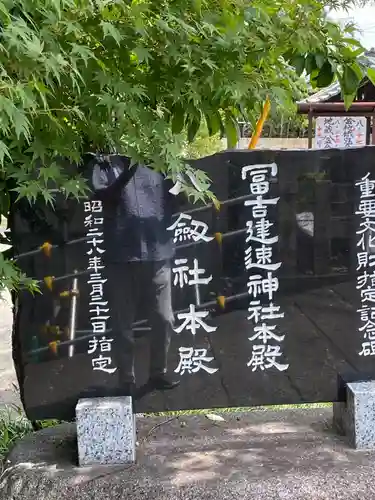 重要文化財指定記碑
冨吉建速神社本殿
八剱社本殿
昭和二十八年三月三十日指定